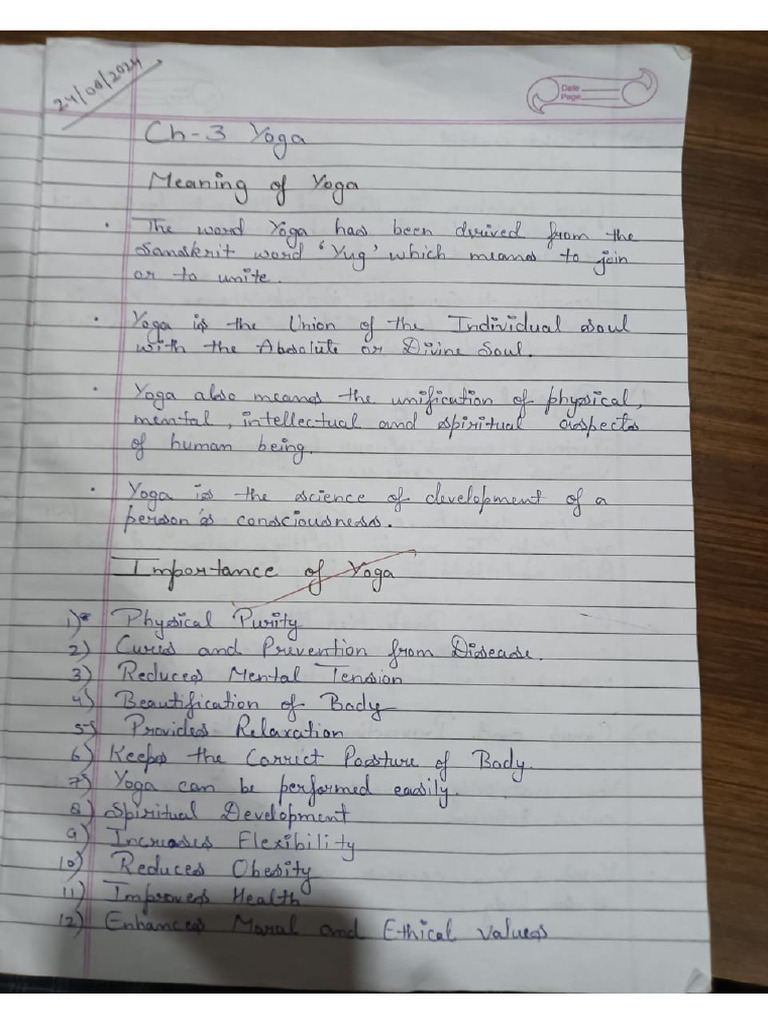 24/08/2024
Date
Page
Ch-3 Yoga
Meaning of Yoga
• The word Yoga has been derived from the
Sanskrit word 'Yug' which means to join
or to unite.
• Yoga is the Union of the Individual soul
with the Absolute or Divine Soul.
• Yoga also means the unification of physical,
mental, intellectual and spiritual aspects
of human being.
• Yoga is the science of development of a
person's consciousness.
Importance of Yoga
1) Physical Purity
2) Cures and Prevention from Disease.
3) Reduces Mental Tension
4) Beautification of Body
5) Provides Relaxation
6) Keeps the Corrict Posture of Body.
7) Yoga can be performed easily.
8) Spiritual Development
9) Increases Flexibility
10) Reduces Obesity
11) Improves Health
12) Enhances Moral and Ethical values